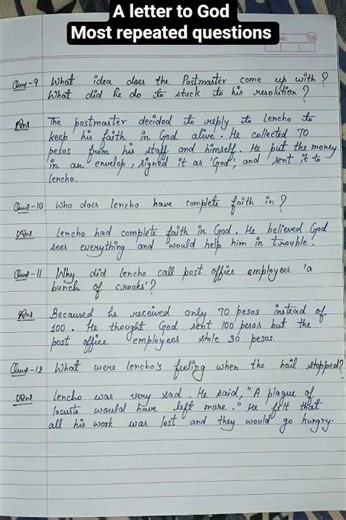 A letter to God
Most repeated questions
Ques-9 What idea does the Postmaster come up with?
What did he do to stuck to his resolution?
Ans The postmaster decided to reply to Lencho to
keep his faith in God alive. He collected 70
pesos from his staff and himself. He put the money
in an envelop, signed it as 'God', and sent it to
Lencho.
Ques-10 Who does Lencho have complete faith in?
Ans Lencho had complete faith in God. He believed God
sees everything and would help him in trouble.
Ques-11 Why did Lencho call post office employees 'a
bunch of crooks'?
Ans Because he received only 70 pesos instead of
100. He thought God sent 100 pesos but the
post office employees stole 30 pesos.
Ques-12 What were Lencho's feeling when the hail stopped?
Ans Lencho was very sad. He said, "A plague of
locusts would have left more." He felt that
all his work was lost and they would go hungry.